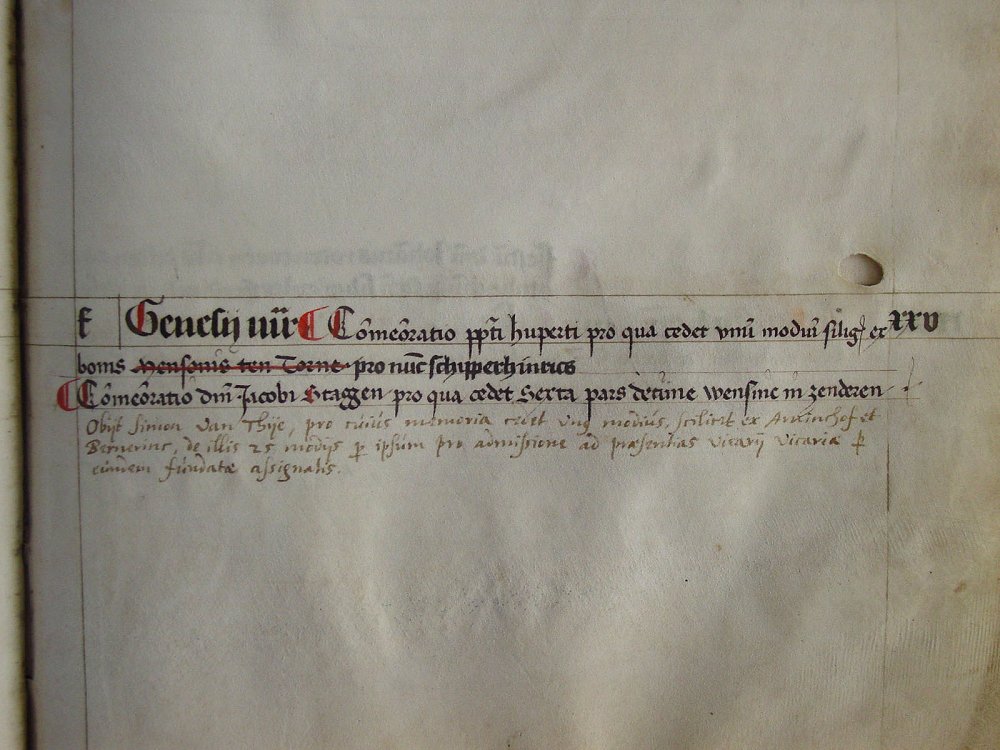 f Genesij mr̄r Cōmeōratio pp̄ti huperti pro qua cedet vnū modiū siliḡ ex xxv
bonis wensonis ten Torne pro nūc schipperhinrics
Cōmeōratio dn̄i Jacobi Staggen pro qua cedet Sexta pars decime wensinc in zenderen
Obijt Simon van Thije, pro cuius memoria cedit unꝰ modius, scilicet ex et
Bernerinc, de illis 25 modijs ꝑ ipsum pro admissione ad præsentias vicarij vicariæ ꝑ
eundem fundatæ assignatis.